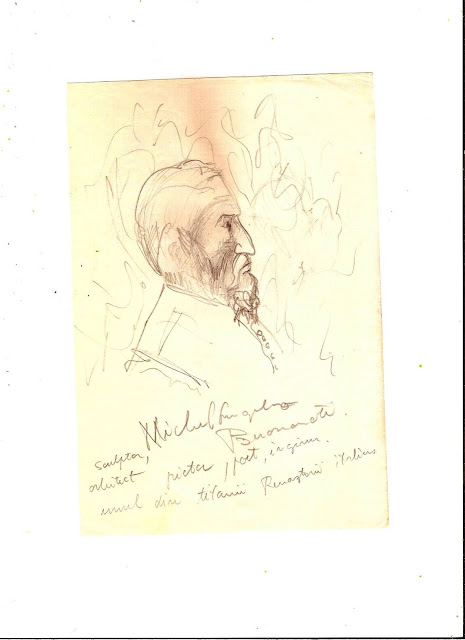 Michel Angelo
Buonaroti.
Sculptor,
arhitect pictor poet, inginer.
unul din titanii Renașterii italiene